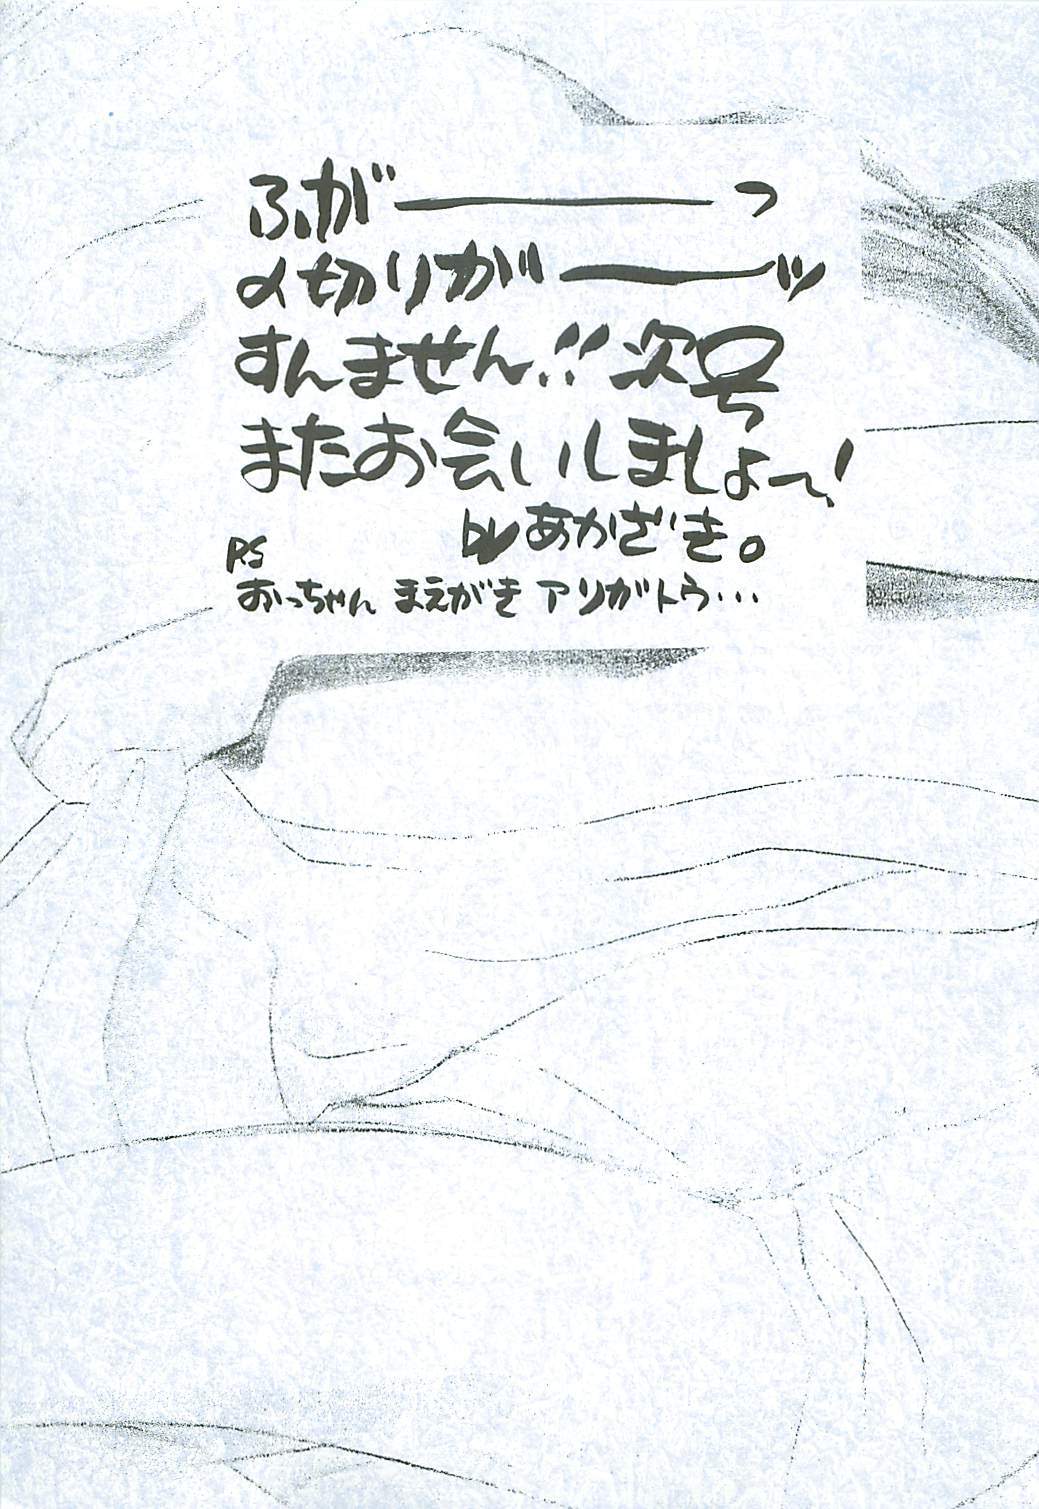 ふがーーーーっ
〆切りがーーーッ
すんません!!次号
またお会いしましょー!
by あかざき。
P.S
おっちゃん まえがき アリガトウ・・・